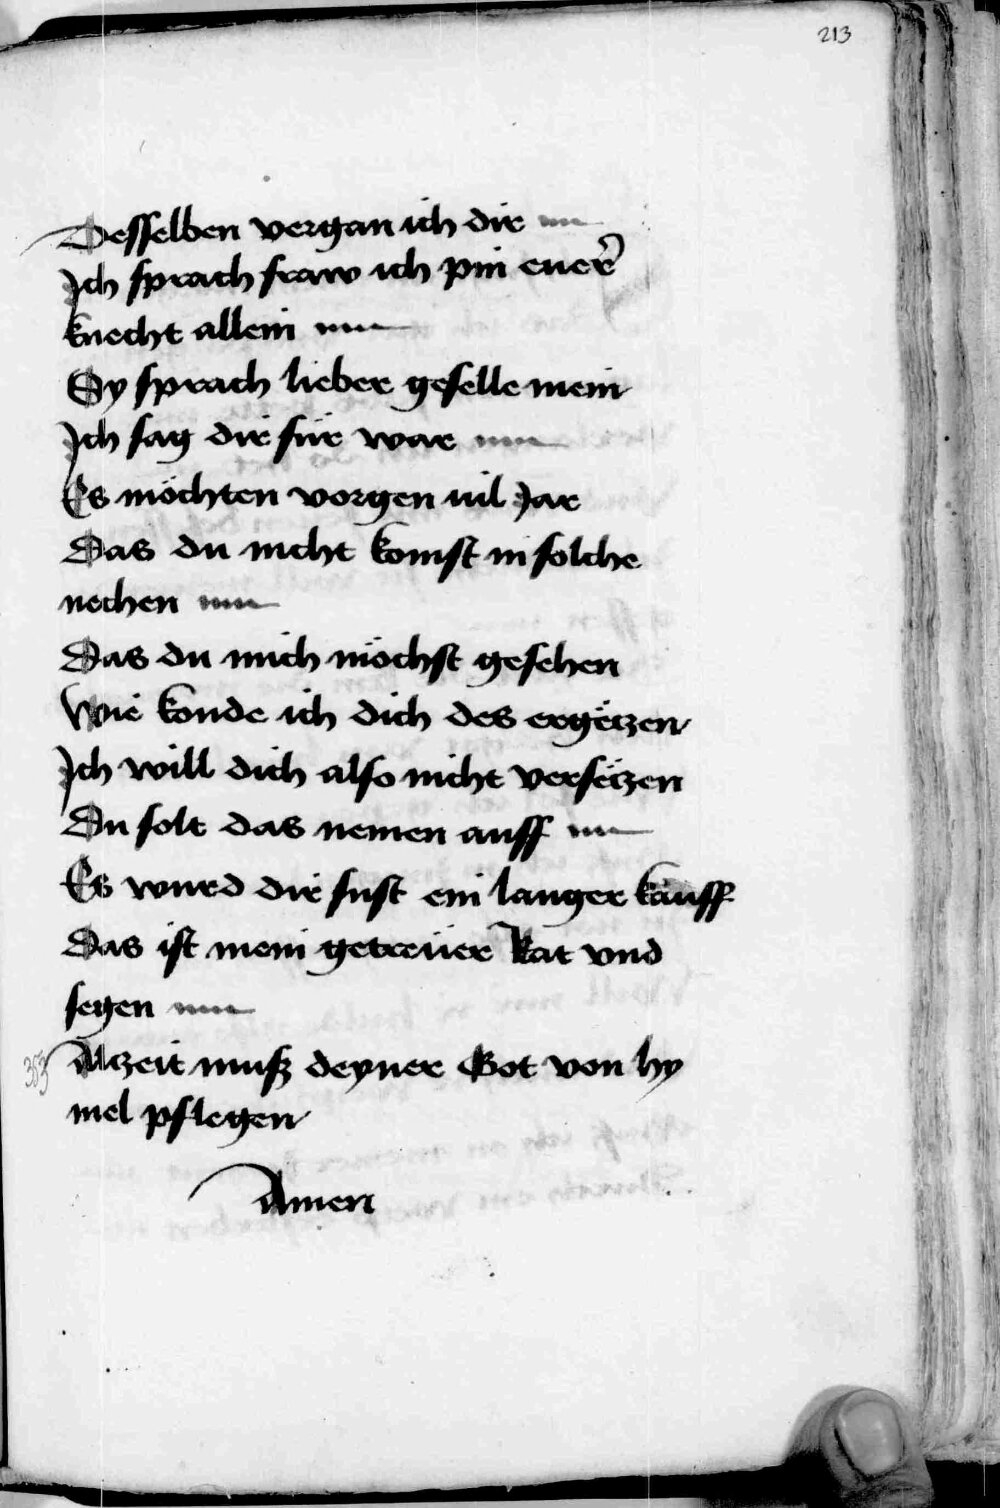 213
Desselben vergan ich dir
Ich sprach fraw ich pin euer̄
knecht allein
Sy sprach lieber geselle mein
Ich sag dir für war
Es möchten vorgen vil Jar
Das du nicht komst in solche
nechen
Das du mich möchst gesehen
Wie konde ich dich des ergetzen
Ich will dich also nicht versetzen
Du solt das nemen auff
Es wurd dir sust ein langer kauff
Das ist mein getreüer Rat vnd
segen
353 Alzeit muß deyner Got von hy
mel pflegen
Amen